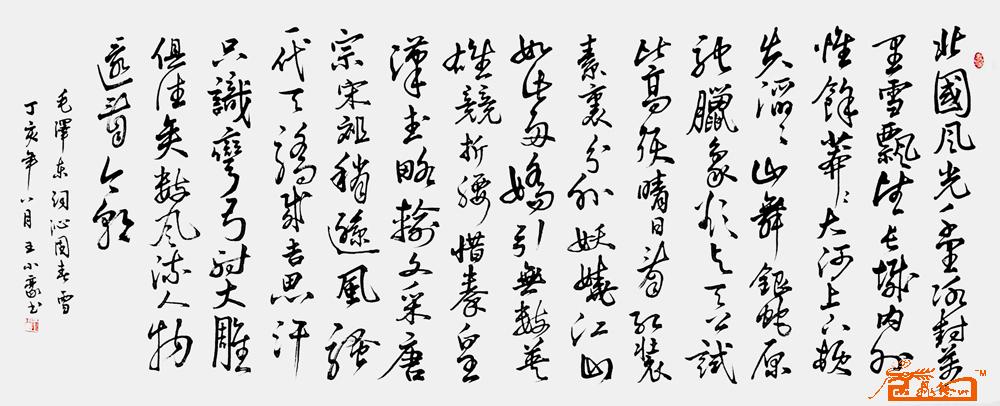 北國风光千里冰封萬
里雪飄望長城内外
惟餘莽〻大河上下頓
失滔〻山舞銀蛇原
馳臘象欲与天公試
比高须晴日看紅裝
素裹分外妖嬈江山
如此多嬌引無數英
雄競折腰惜秦皇
漢武略輸文采唐
宗宋祖稍遜風騷
一代天驕成吉思汗
只識彎弓射大雕
俱往矣數风流人物
還看今朝
毛澤东词沁園春雪
丁亥年八月王小書